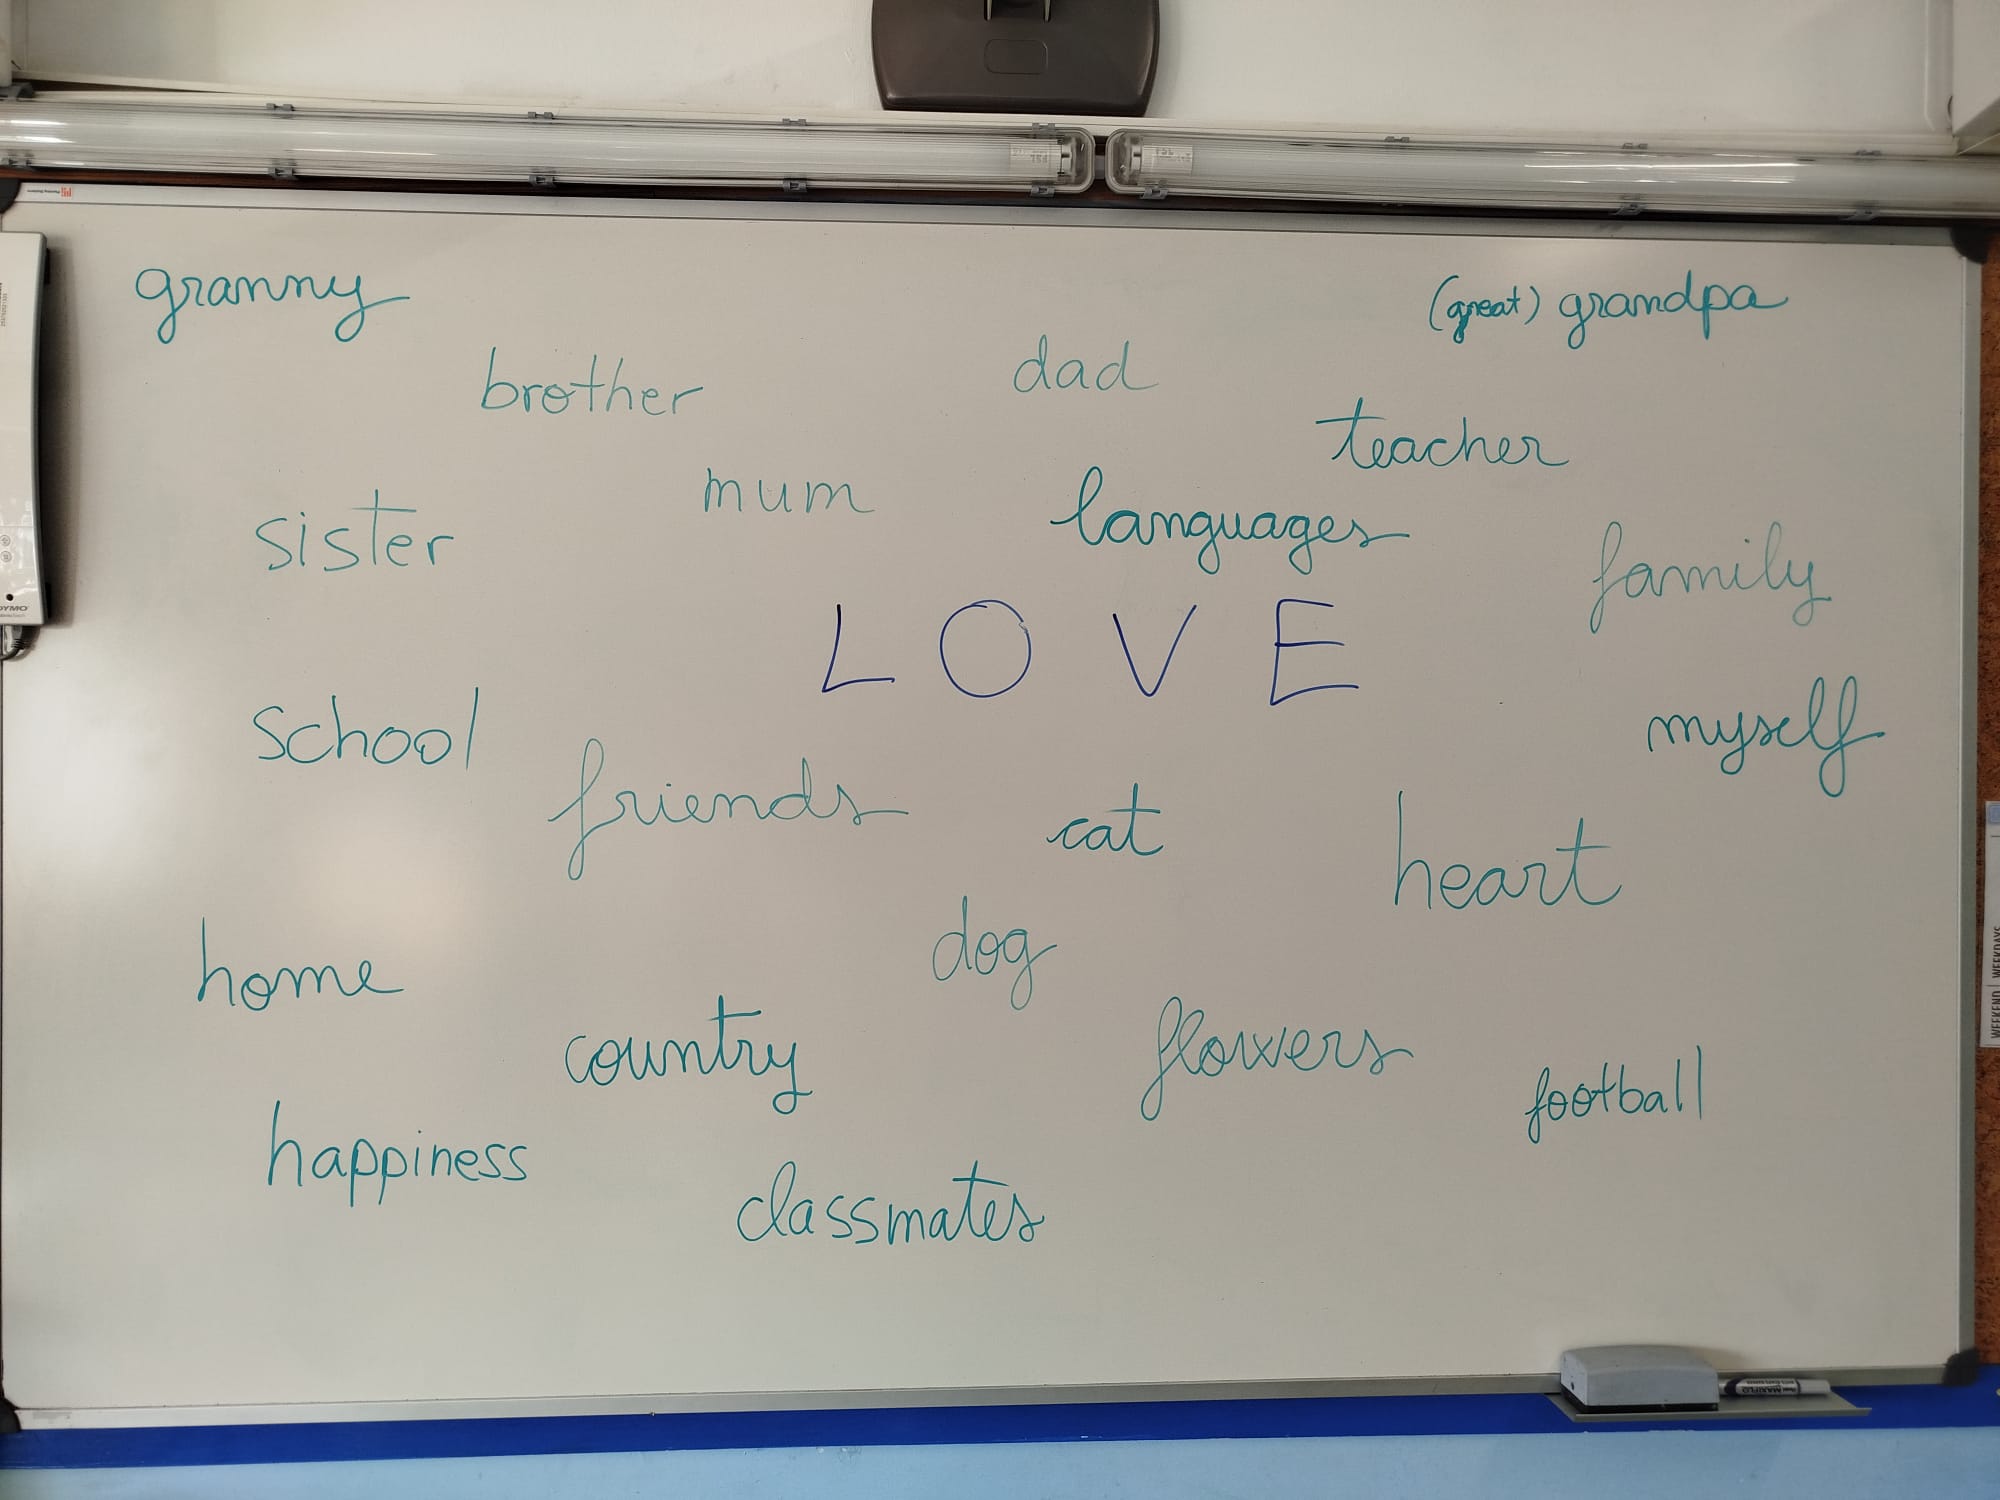 granny
(great) grandpa
brother
dad
teacher
mum
languages
sister
family
LOVE
school
myself
friends
cat
heart
dog
home
country
flowers
football
happiness
classmates
DYMO
WEEKEND | WEEKDAYS
FSL